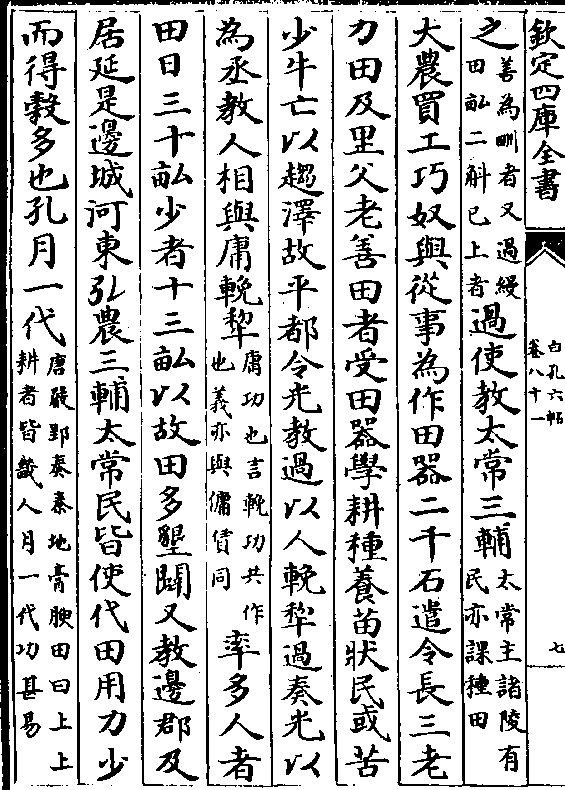 欽定四庫全書
白孔六帖
卷八十一
七
之善為甽者又過縵田畝二斛已上者過使教太常三輔太常主諸陵有民亦課種田
大農買工巧奴與從事為作田器二千石遣令長三老
力田及里父老善田者受田器學耕種養苗狀民或苦
少牛亡以趨澤故平都令光教過以人輓犂過奏光以
為丞教人相與庸輓犂庸功也言輓功共作也義亦與傭賃同率多人者
田日三十畝少者十三畝以故田多墾闢又教邊郡及
居延是邊城河東弘農三輔太常民皆使代田用力少
而得穀多也孔月一代唐嚴郢奏秦地膏腴田曰上上耕者皆譏人月一代功甚易